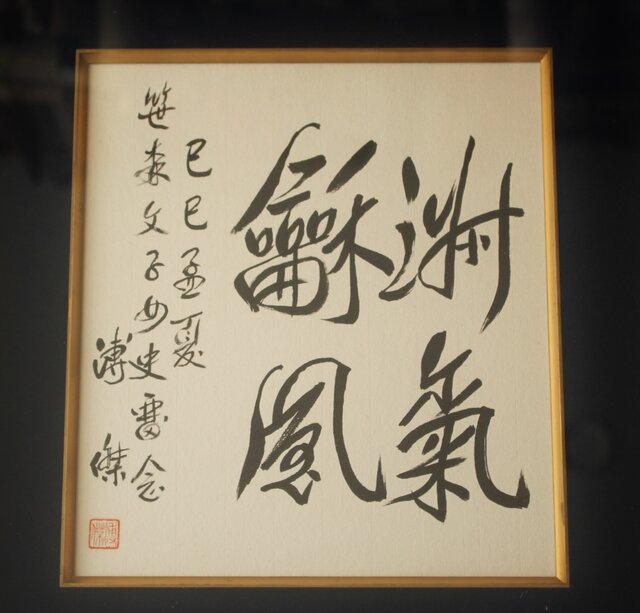 淑氣
龢風
己巳孟夏
笹森文子女史畱念
溥傑